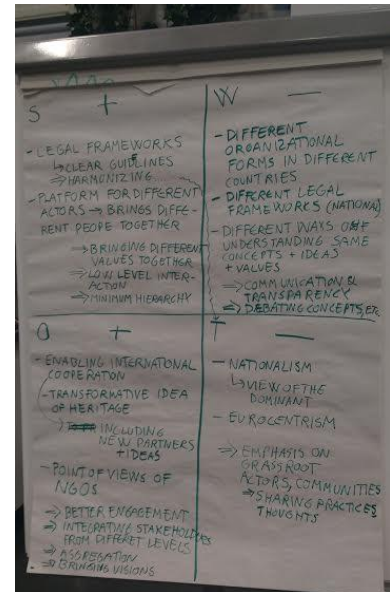 S +
- LEGAL FRAMEWORKS
↳ CLEAR GUIDELINES
⇒ HARMONIZING
- PLATFORM FOR DIFFERENT
ACTORS → BRINGS DIFFE-
RENT PEOPLE TOGETHER
⇒ BRINGING DIFFERENT
VALUES TOGETHER
⇒ LOW LEVEL INTER-
ACTION
⇒ MINIMUM HIERARCHY
W —
- DIFFERENT
ORGANIZATIONAL
FORMS IN DIFFERENT
COUNTRIES
- DIFFERENT LEGAL
FRAMEWORKS (NATIONAL)
- DIFFERENT WAYS OF
UNDERSTANDING SAME
CONCEPTS + IDEAS
+ VALUES
⇒ COMMUNICATION &
TRANSPARENCY
⇒ DEBATING CONCEPTS, ETC.
O +
- ENABLING INTERNATIONAL
COOPERATION
- TRANSFORMATIVE IDEA
OF HERITAGE
⇒ INCLUDING
NEW PARTNERS
+ IDEAS
- POINT OF VIEWS OF
NGOS
⇒ BETTER ENGAGEMENT
⇒ INTEGRATING STAKEHOLDERS
FROM DIFFERET LEVELS
⇒ BRINGING VISIONS
T —
- NATIONALISM
↳ VIEW OF THE
DOMINANT
- EUROCENTRISM
⇒ EMPHASIS ON
GRASSROOT
ACTORS, COMMUNITIES
⇒ SHARING PRACTICES
THOUGHTS